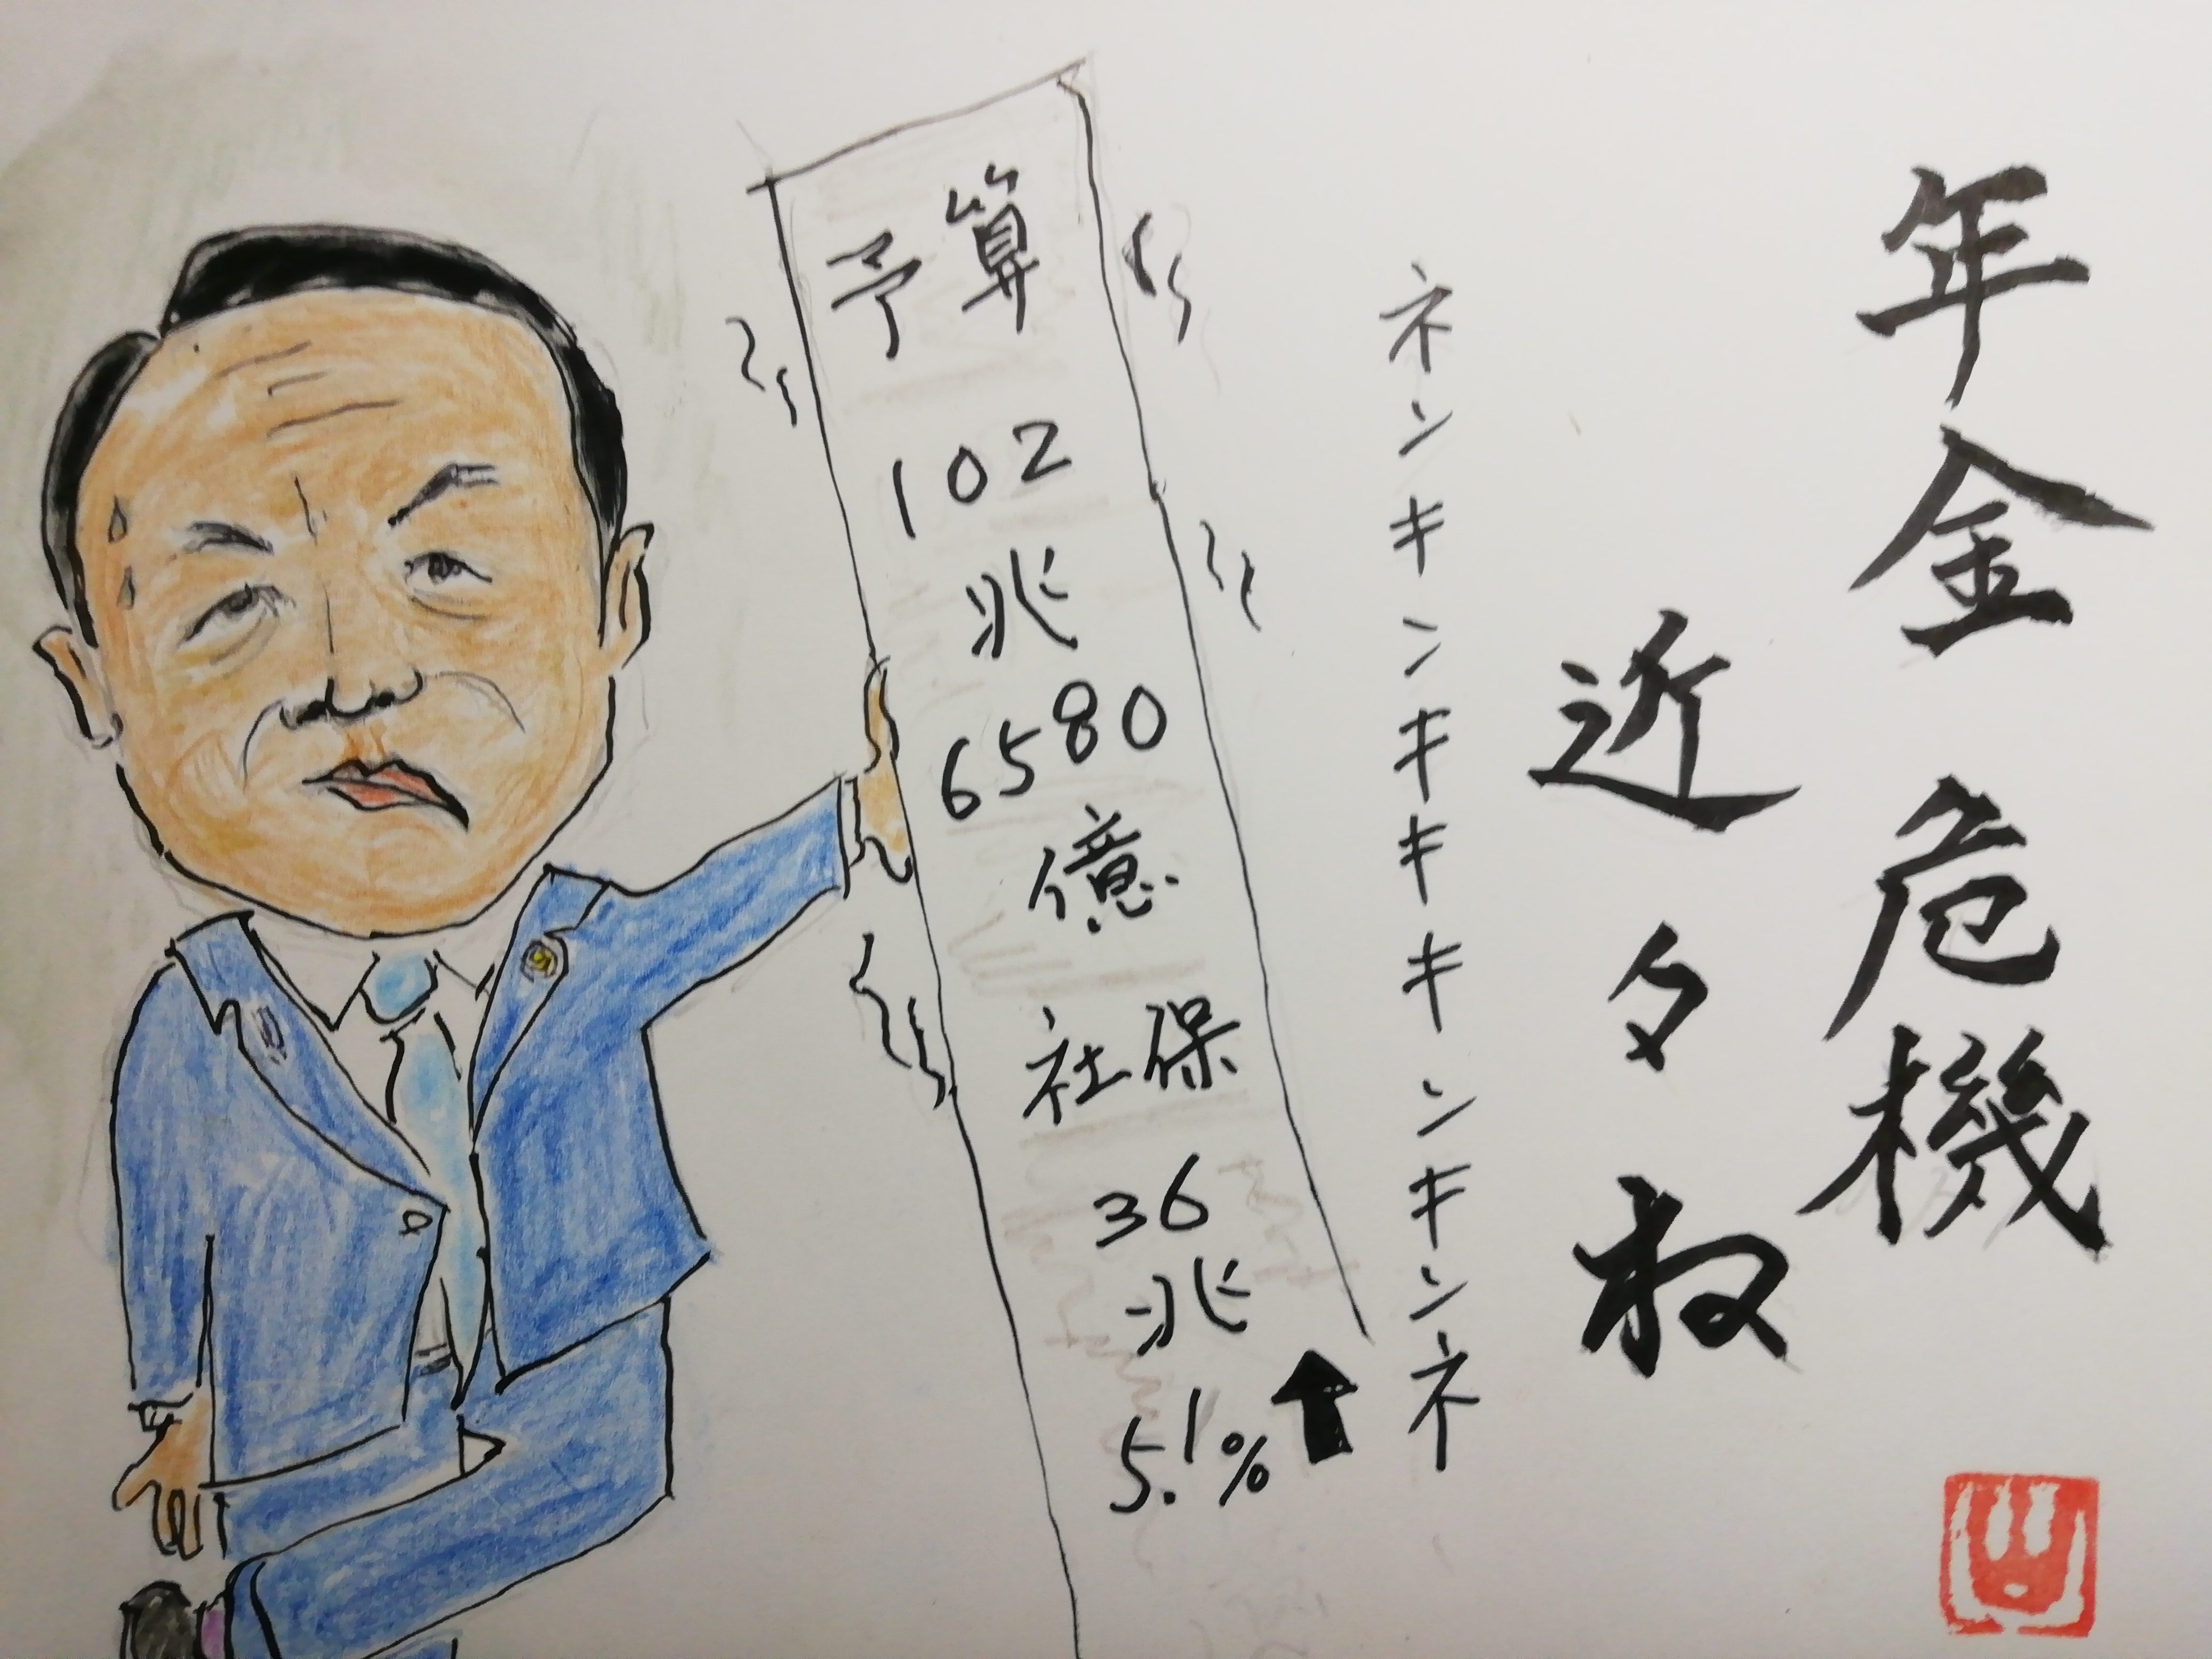 年金危機
近々ね
ネンキンキキキンキンネ
予算
102
兆
6580
億
社保
36
兆
5.1%⬆